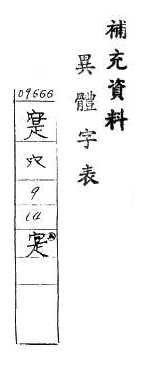 補充資料
異體字表
09666
穴
9
14
寔